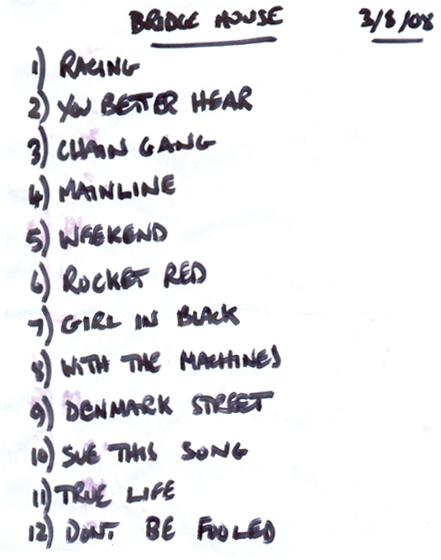 BRIDGE HOUSE 3/8/08
1) RACING
2) YOU BETTER HEAR
3) CHAIN GANG
4) MAINLINE
5) WEEKEND
6) ROCKET RED
7) GIRL IN BLACK
8) WITH THE MACHINES
9) DENMARK STREET
10) SUE THIS SONG
11) TRUE LIFE
12) DONT BE FOOLED